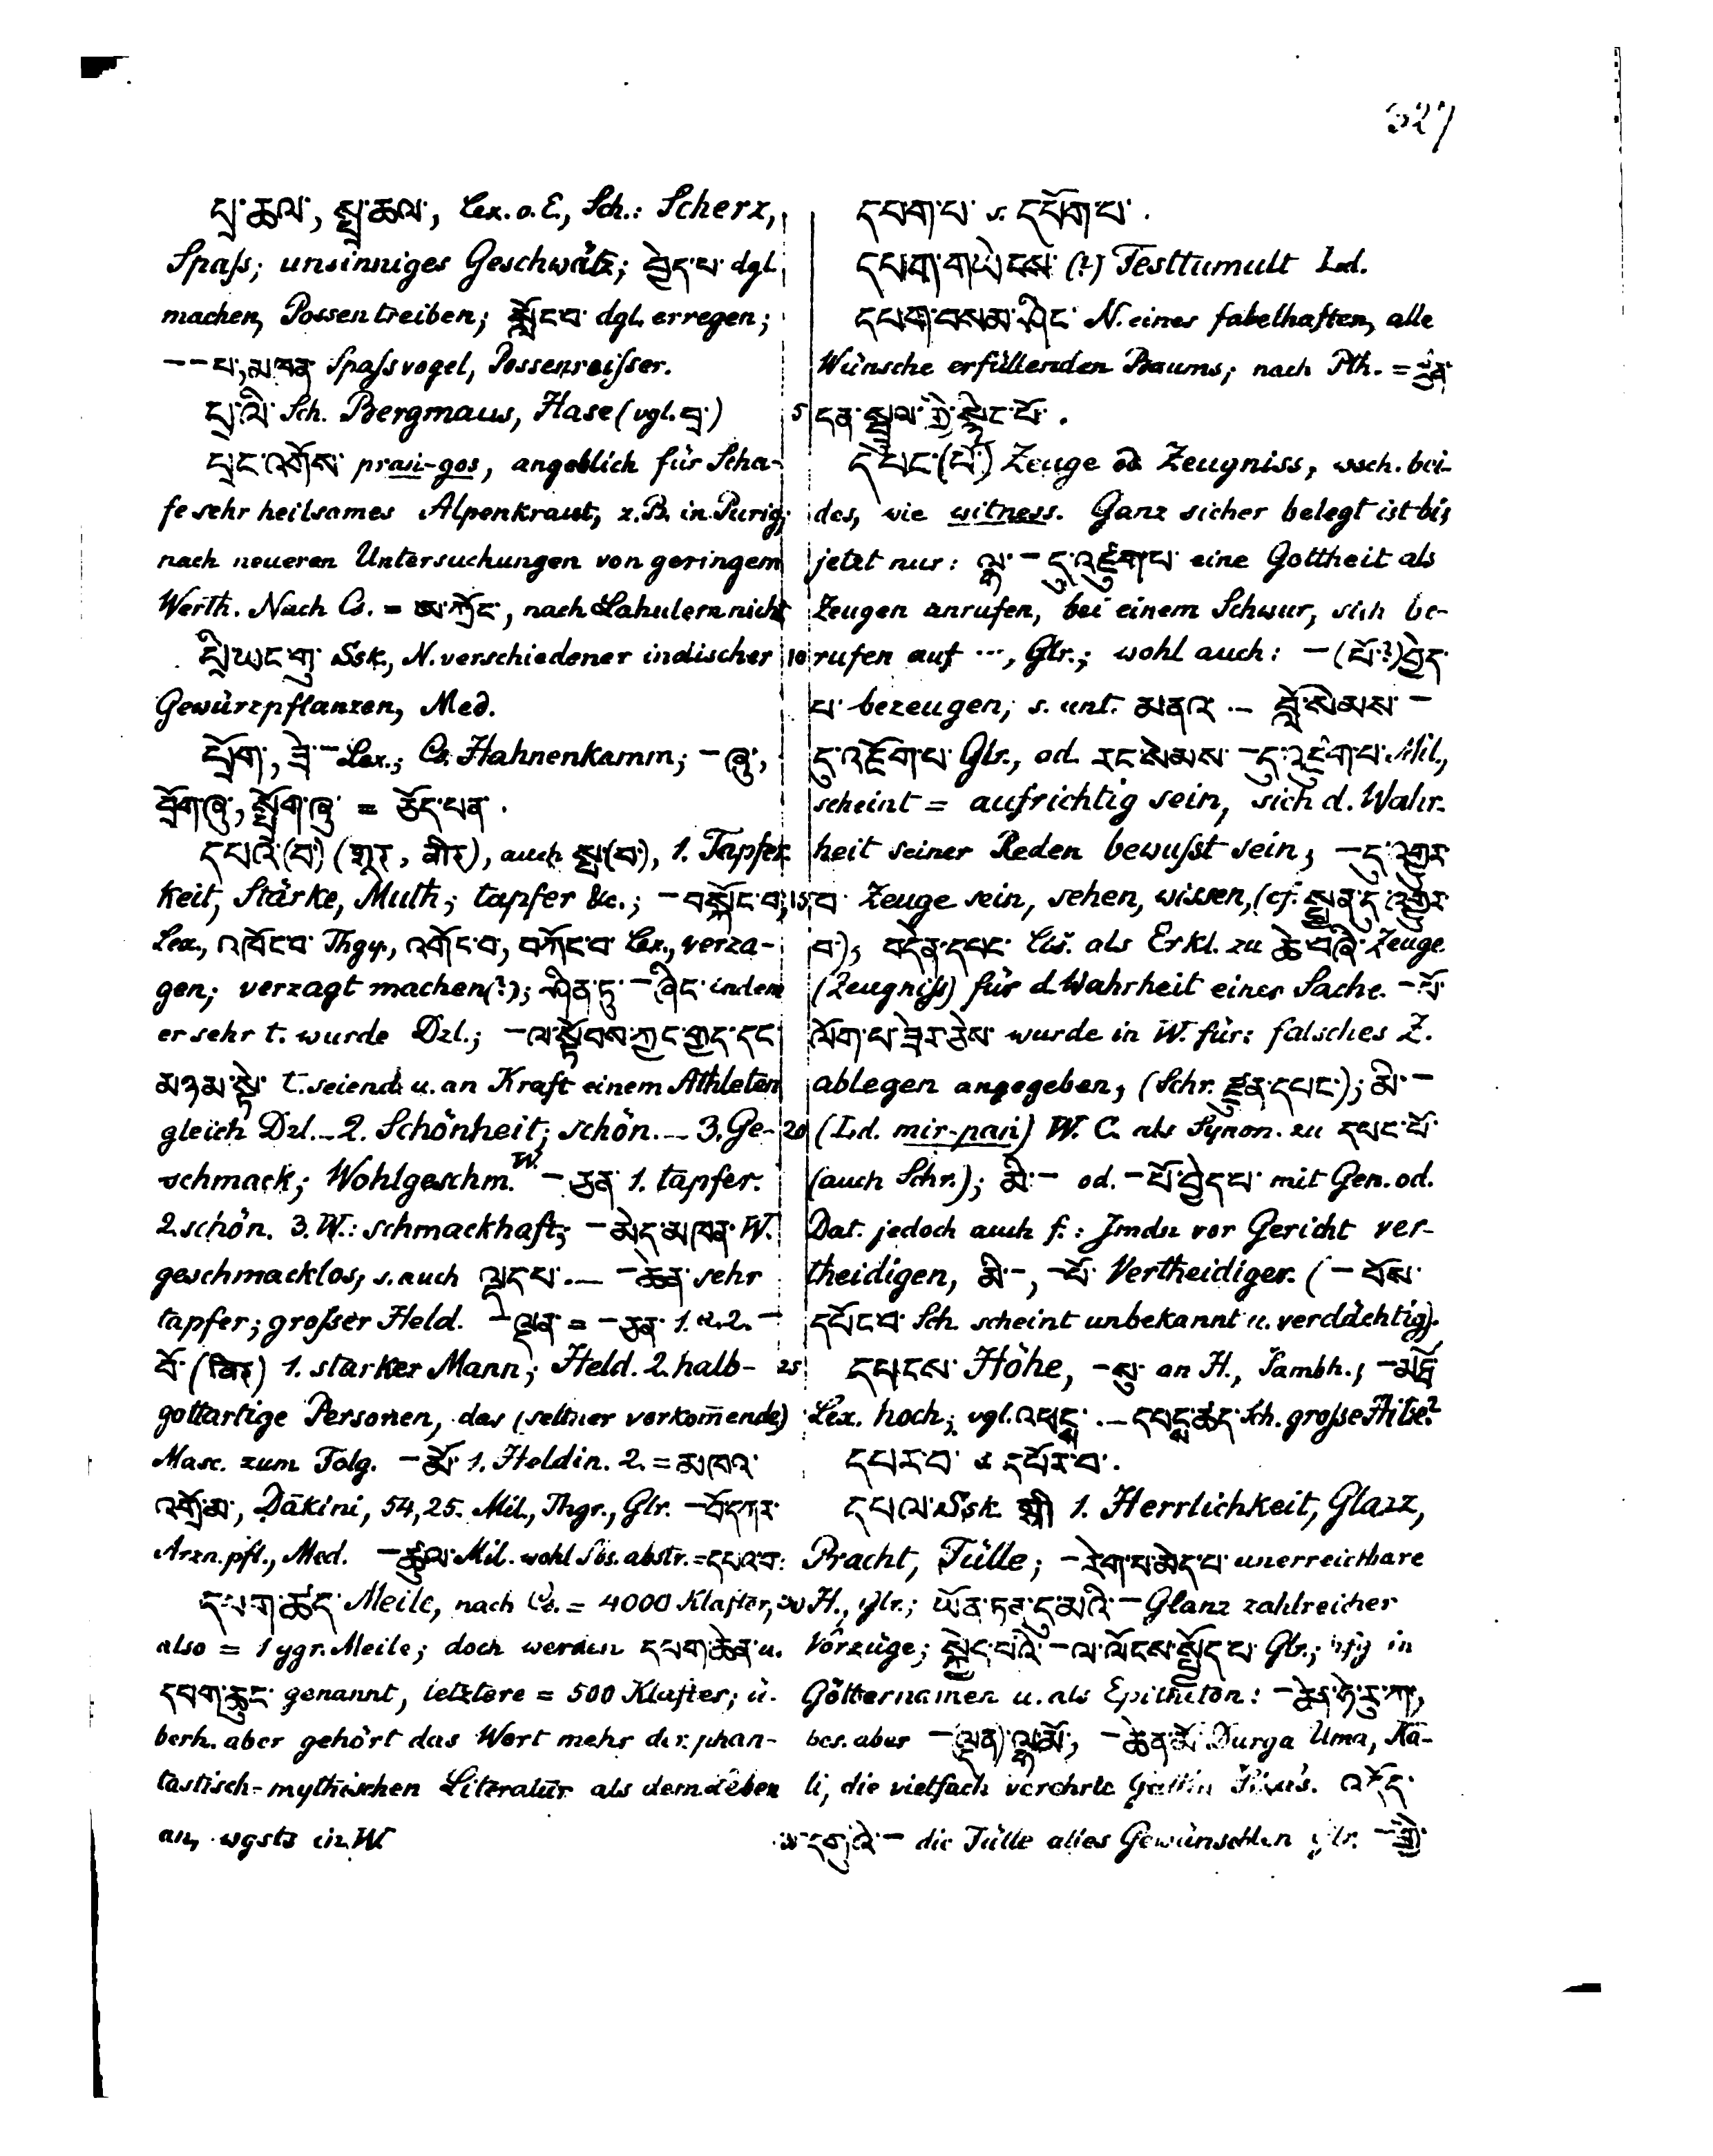 327
པྲ་ཆལ་, སྤྲ་ཆལ་, Lex. o. E., Sch.: Scherz,
Spaſs; unsinniges Geschwätz; བྱེད་པ་ dgl.
machen, Possen treiben; སློང་བ་ dgl. erregen;
–– པ་, མཁན་ Spaſsvogel, Possenreiſser.
པྲ་ལི་ Sch. Bergmaus, Hase (vgl. བྲ་)
པྲང་འགོས་ praṅ-gos, angeblich für Scha-
fe sehr heilsames Alpenkraut, z. B. in Purig,
nach neueren Untersuchungen von geringem
Werth. Nach Cs. = , nach Lahulern nicht
པྲི་ཡང་གུ་ Ssk., N. verschiedener indischer
Gewürzpflanzen, Med.
པྲོག་, ཟེ་– Lex.; Cs. Hahnenkamm; –ཞུ་,
པྲོག་ཞུ་, སྤྲོག་ཞུ་ = ཅོད་པན་.
དཔའ་(བ་) (शूर, वीर), auch སྤ་(བ་), 1. Tapfer-
keit, Stärke, Muth; tapfer &c.; –བསྐོང་བ་,
Lex., འཁོང་བ་ Thgy., འགོང་བ་, བཀོང་བ་ Lex., verza-
gen; verzagt machen(?); ཤིན་ཏུ་–ཞིང་ indem
er sehr t. wurde Dzl.; –ལ་སྟོབས་ཀྱང་གྱད་དང་
མཉམ་སྟེ་ t. seiend u. an Kraft einem Athleten
gleich Dzl. – 2. Schönheit; schön. – 3. Ge-
schmack; Wohlgeschm. W. –ཅན་ 1. tapfer.
2. schön. 3. W.: schmackhaft; –མེད་མཁན་ W.
geschmacklos, s. auch ལྡད་པ་. – –ཆེན་ sehr
tapfer; großer Held. –ལྡན་ = –ཅན་ 1. u. 2. –
བོ་ (वीर) 1. starker Mann; Held. 2. halb-
gottartige Personen, das (seltner vorkom̄ende)
Masc. zum Folg. –མོ་ 1. Heldin. 2. = མཁའ་
འགྲོ་མ་, Ḍākini, 54, 25. Mil., Thgr., Glr. –བོ་དཀར་
Arzn. pfl., Med. –རྩལ་ Mil. wohl Sbs. abstr. = དཔའ་བ་
དཔག་ཚད་ Meile, nach Cs. = 4000 Klafter,
also = 1 ggr. Meile; doch werden དཔག་ཆེན་ u.
དཔག་ཆུང་ genannt, letztere = 500 Klafter; ü-
berh. aber gehört das Wort mehr der phan-
tastisch-mythischen Literatur als dem Leben
an, wgsts in W.
དཔག་པ་ s. དཔོག་པ་.
དཔག་གཡེངས་ (?) Festtumult Ld.
དཔག་བསམ་ཤིང་ N. eines fabelhaften, alle
Wünsche erfüllenden Baums; nach Pth. =
5 དན་སྦྲུལ་གྱི་སྙིང་པོ་.
དཔང་(པོ་) Zeuge od. Zeugniss, wsch. bei-
des, wie witness. Ganz sicher belegt ist bis
jetzt nur: ལྷ་–དུ་འཛུགས་པ་ eine Gottheit als
Zeugen anrufen, bei einem Schwur, sich be-
10 rufen auf ···, Glr.; wohl auch: –(པོ་?)བྱེད་
པ་ bezeugen, s. unt. མནའ་ – བློ་སེམས་–
དུ་འཛོག་པ་ Glr., od. རང་སེམས་–དུ་འཛོག་པ་ Mil.,
scheint = aufrichtig sein, sich d. Wahr-
heit seiner Reden bewuſst sein; –དུ་འགྱུར་
15 བ་ Zeuge sein, sehen, wissen, (cf. སྤྱན་དུ་འགྱུར་
བ་); བདེན་དཔང་ Cs. als Erkl. zu ཆེ་བཞི་ Zeuge
(Zeugniſs) für d. Wahrheit einer Sache. –པོ་
ལོག་པ་ཟེར་ཅེས་ wurde in W. für: falsches Z.
ablegen angegeben, (Schr. རྫུན་དཔང་); མི་–
20 (Ld. mir-paṅ) W. C. als Synon. zu དཔང་པོ་
(auch Schr.); མི་– od. –པོ་བྱེད་པ་ mit Gen. od.
Dat. jedoch auch f.: Jmdn vor Gericht ver-
theidigen, མི་–, –པོ་ Vertheidiger. (–བོས་
དཔོང་བ་ Sch. scheint unbekannt u. verdächtig).
25 དཔངས་ Höhe, –སུ་ an H., Śambh.; –མཐོ་
Lex. hoch; vgl. འཕང་. – དཔངས་ཚད་ Sch. große Hitze?
དཔར་བ་ s. དཔོར་བ་.
དཔལ་ Ssk. श्री 1. Herrlichkeit, Glanz,
Pracht, Fülle; –རེག་པ་མེད་པ་ unerreichbare
30 H., Glr.; ཡོན་ཏན་དུ་མའི་–Glanz zahlreicher
Vorzüge; –ལ་ལོངས་སྤྱོད་པ་ Glr.; hfg in
Götternamen u. als Epitheton: –ཆེན་ཧེ་རུ་ཀ་,
bes. aber –(ལྡན་)ལྷ་མོ་, –ཆེན་མོ་ Durga Uma, Kā-
li, die vielfach verehrte Gattin Śiva's. འདོད་
35 དགུའི་– die Fülle alles Gewünschten Glr. –གྱི་